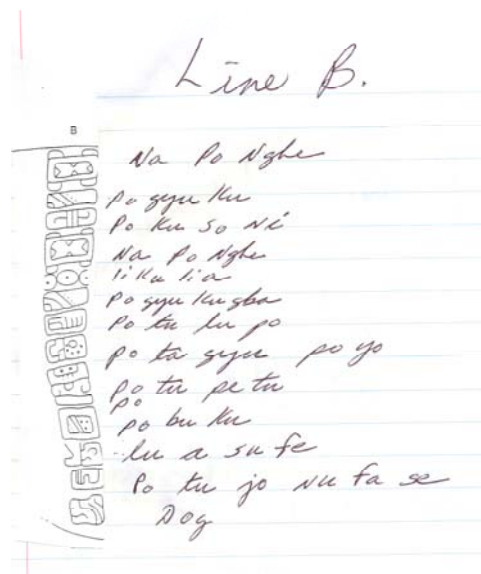 Line B.
B
Na Po Nghe
Po gyu Ku
Po Ku so Ni
Na Po Nghe
li Ku lia
Po gyu Ku gba
Po tu lu po
Po ta gyu po yo
Po tu pe tu
po
po bu Ku
lu a su fe
Po tu jo nu fa se
Dog